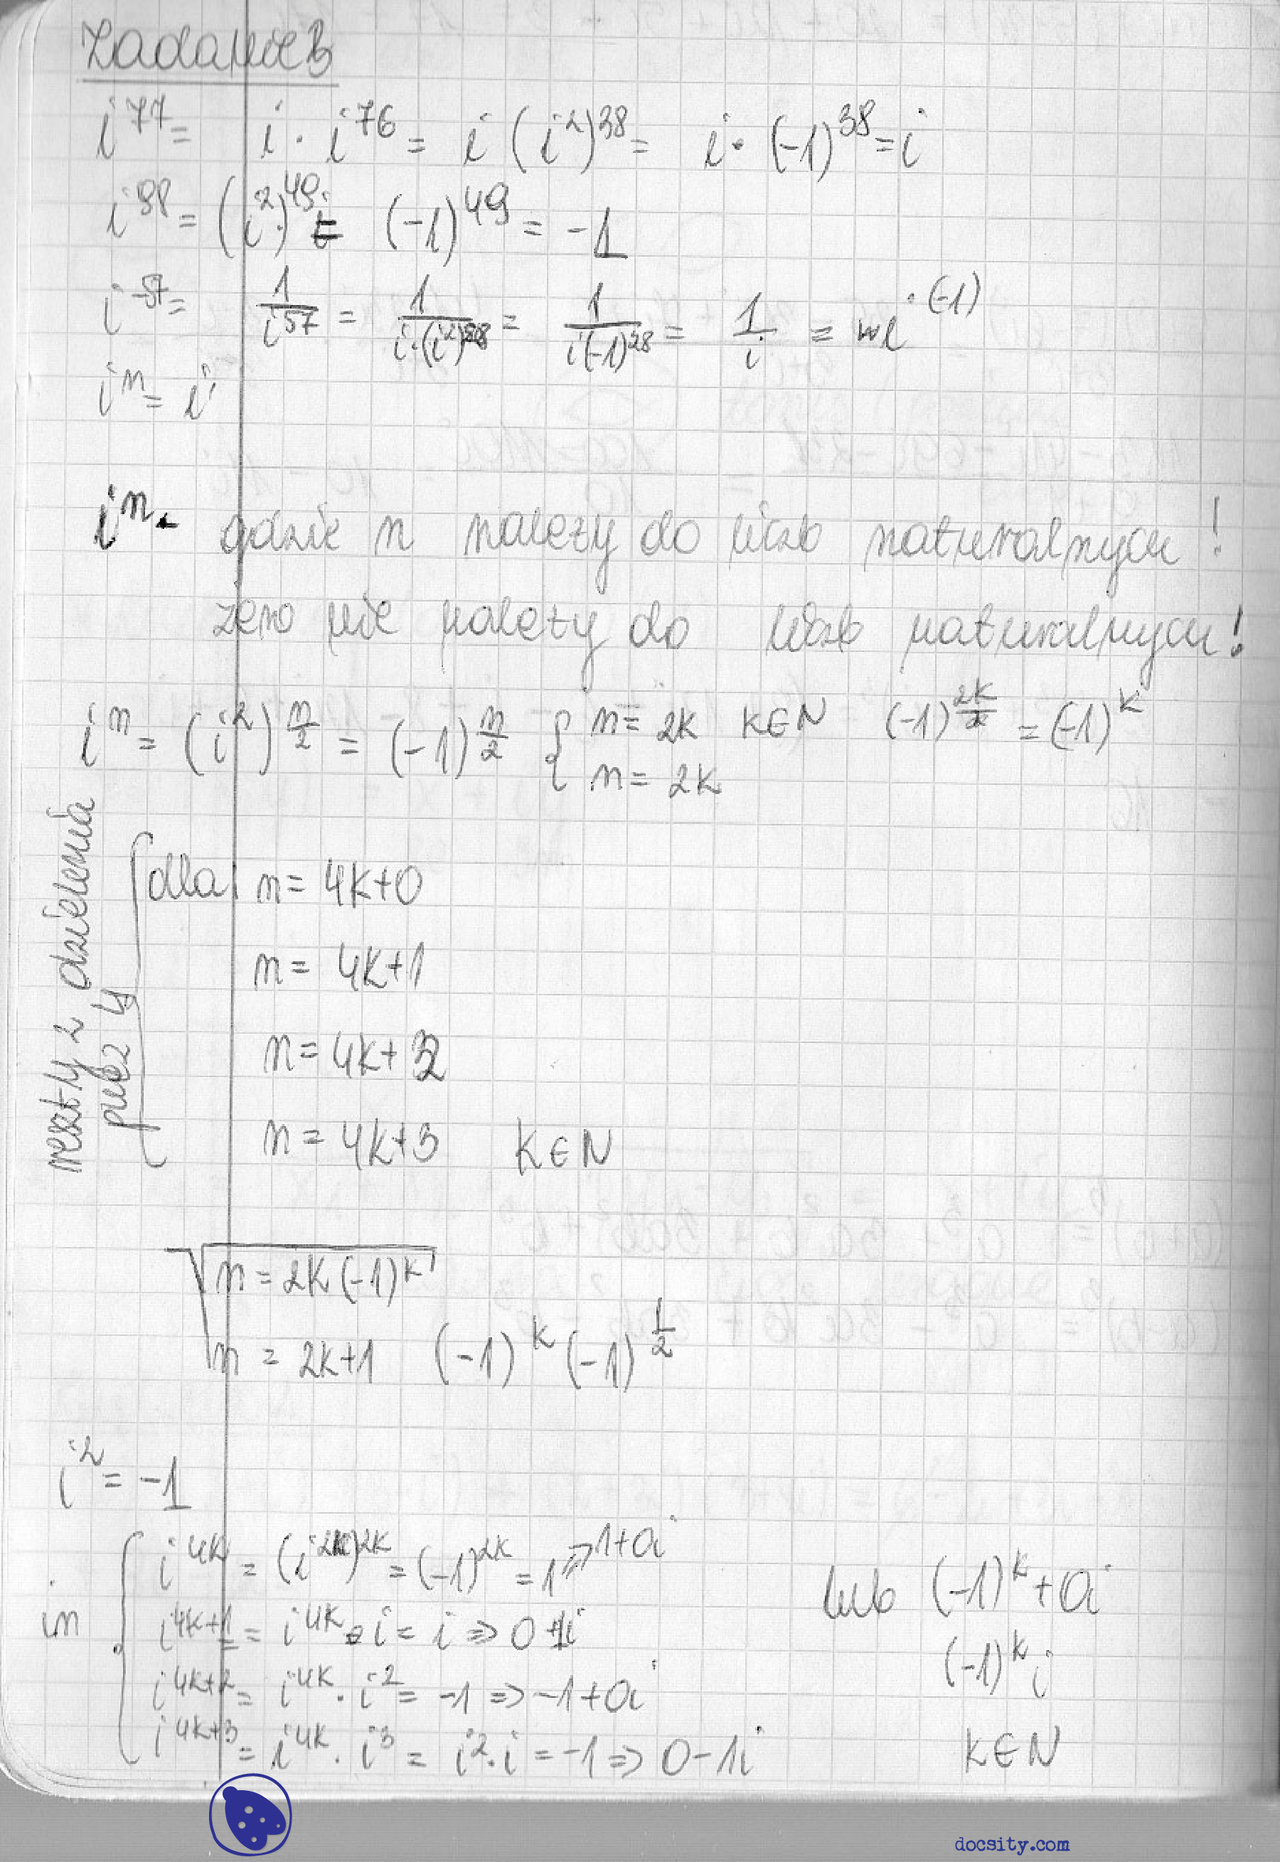 Zadanie 3
i^77 = i · i^76 = i (i^2)^38 = i · (-1)^38 = i
i^98 = (i^2)^49 = (-1)^49 = -1
i^-57 = 1/i^57 = 1/(i·(i^2)^28) = 1/(i(-1)^28) = 1/i = i · (-1)
i^n = i
i^n - gdzie n należy do liczb naturalnych!
zero nie należy do liczb naturalnych!
i^n = (i^2)^(n/2) = (-1)^(n/2) { n = 2k k∈N (-1)^(2k/2) = (-1)^k
n = 2k
reszty z dzielenia
przez 4
dla n = 4k+0
n = 4k+1
n = 4k+2
n = 4k+3 k∈N
n = 2k (-1)^k
n = 2k+1 (-1)^k (-1)^(1/2)
i^2 = -1
i^4k = (i^2)^2k = (-1)^2k = 1 => 1+0i
i^n { i^4k+1 = i^4k · i = i => 0+1i
i^4k+2 = i^4k · i^2 = -1 => -1+0i
i^4k+3 = i^4k · i^3 = i^2 · i = -1 => 0-1i
lub (-1)^k + 0i
(-1)^k i
k∈N
docsity.com